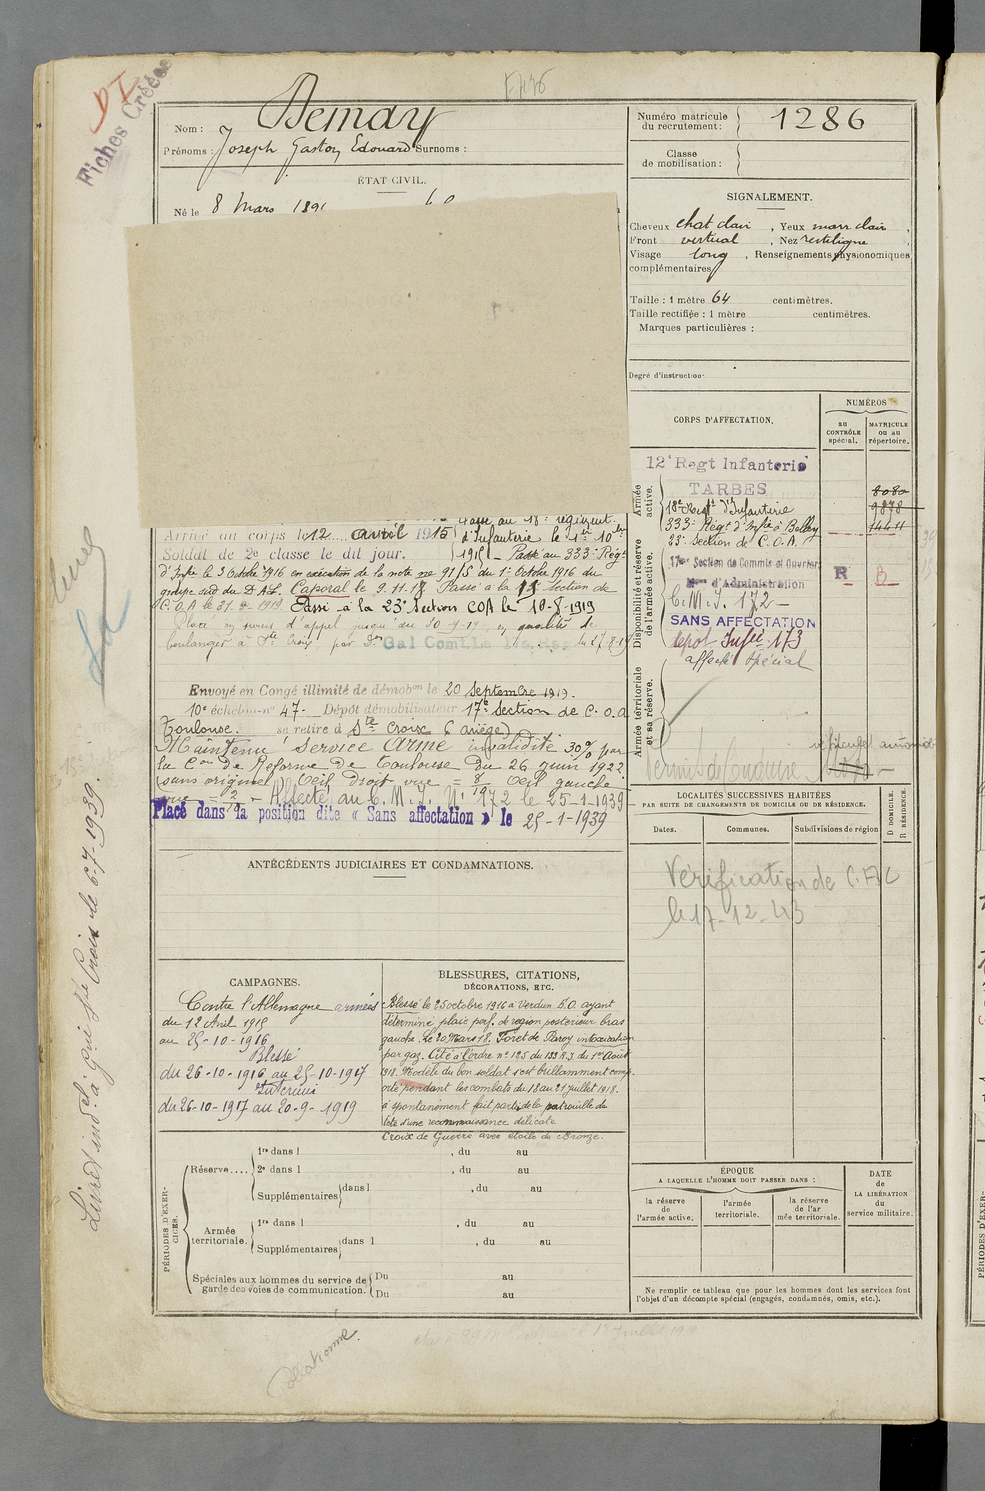 Fiches Créées
Nom : Demay
Prénoms : Joseph Gaston Edouard Surnoms :
Numéro matricule du recrutement : 1286
Classe de mobilisation :
ÉTAT CIVIL.
Né le 8 Mars 189
SIGNALEMENT.
Cheveux chat clair , Yeux marr clair ,
Front vertical , Nez rectiligne ,
Visage long , Renseignements physionomiques
complémentaires
Taille : 1 mètre 64 centimètres.
Taille rectifiée : 1 mètre centimètres.
Marques particulières :
Degré d'instruction
CORPS D'AFFECTATION.
NUMÉROS
au CONTRÔLE spécial.
MATRICULE ou au répertoire.
Armée active.
12e Regt Infanterie
TARBES 8080
18e Regt d'Infanterie 9878
333e Rég t d'Infie à Belley 14411
23e Section de C.O.A.
Disponibilité et réserve de l'armée active.
17me Section de Commis et Ouvriers
d'Administration
R B
C.M.I. 172
SANS AFFECTATION
Dépot Infie 173
affecté spécial
Armée territoriale et sa réserve.
Permis de Conduire
Passé au 18e régiment
Arrivé au corps le 12 avril 1915 d'Infanterie le 1er 10bre
Soldat de 2e classe le dit jour. 1915 Passé au 333e Régt
d'Infie le 3 Octobre 1916 en exécution de la note no 91/S du 1er Octobre 1916 du
groupe sud du D.A.L. Caporal le 9.11.17 Passé à la 15 Section de
C.O.A le 31. 1919 Passé à la 23e Section COA le 10-8-1919
Placé en sursis d'appel jusqu'au 30-9-19 en qualité de
boulanger à Ste Croix, par Don Gal Comt La
Envoyé en Congé illimité de démobon le 20 Septembre 1919.
10e échelon no 47 Dépôt démobilisateur 17e Section de C.O.A
Toulouse. se retire à Ste Croix (Ariège)
Maintenu Service Armé invalidité 30% par
la Con de Réforme de Toulouse du 26 juin 1922
(sans origine) Oeil droit vue = 8 Oeil gauche
vue = 2/10 - Affecté au C.M.I. No 172 le 25-1-1939
Placé dans la position dite « Sans affectation » le 25-1-1939
LOCALITÉS SUCCESSIVES HABITÉES
PAR SUITE DE CHANGEMENTS DE DOMICILE OU DE RÉSIDENCE.
Dates. Communes. Subdivisions de région
D DOMICILE. R RÉSIDENCE.
Vérification de C.
le 17-12-43
ANTÉCÉDENTS JUDICIAIRES ET CONDAMNATIONS.
CAMPAGNES.
Contre l'Allemagne armées
du 12 Avril 1915
au 25-10-1916
Blessé
du 26-10-1916 au 25-10-1917
Intérieur
du 26-10-1917 au 20-9-1919
BLESSURES, CITATIONS,
DÉCORATIONS, ETC.
Blessé le 25 octobre 1916 à Verdun E.O. ayant
déterminé plaie perf. de région postérieur bras
gauche. Le 20 Mars 18. Foret de Parroy intoxication
par gaz. Cité à l'ordre no 125 du 133 R.I. du 1er Aout
1918. Modèle du bon soldat s'est brillamment comp
orté pendant les combats du 18 au 21 juillet 1918.
à spontanément fait partie de la patrouille de
tête d'une reconnaissance délicate
Croix de Guerre avec étoile de Bronze.
PÉRIODES D'EXERCICES.
Réserve....
1re dans l , du au
2e dans l , du au
Supplémentaires dans l , du au
Armée territoriale.
1re dans l , du au
Supplémentaires dans l , du au
Spéciales aux hommes du service de garde des voies de communication.
Du au
Du au
ÉPOQUE
A LAQUELLE L'HOMME DOIT PASSER DANS :
la réserve de l'armée active.
l'armée territoriale.
la réserve de l'armée territoriale.
DATE de LA LIBÉRATION du service militaire.
Ne remplir ce tableau que pour les hommes dont les services font
l'objet d'un décompte spécial (engagés, condamnés, omis, etc.).
PÉRIODES D'EXER-